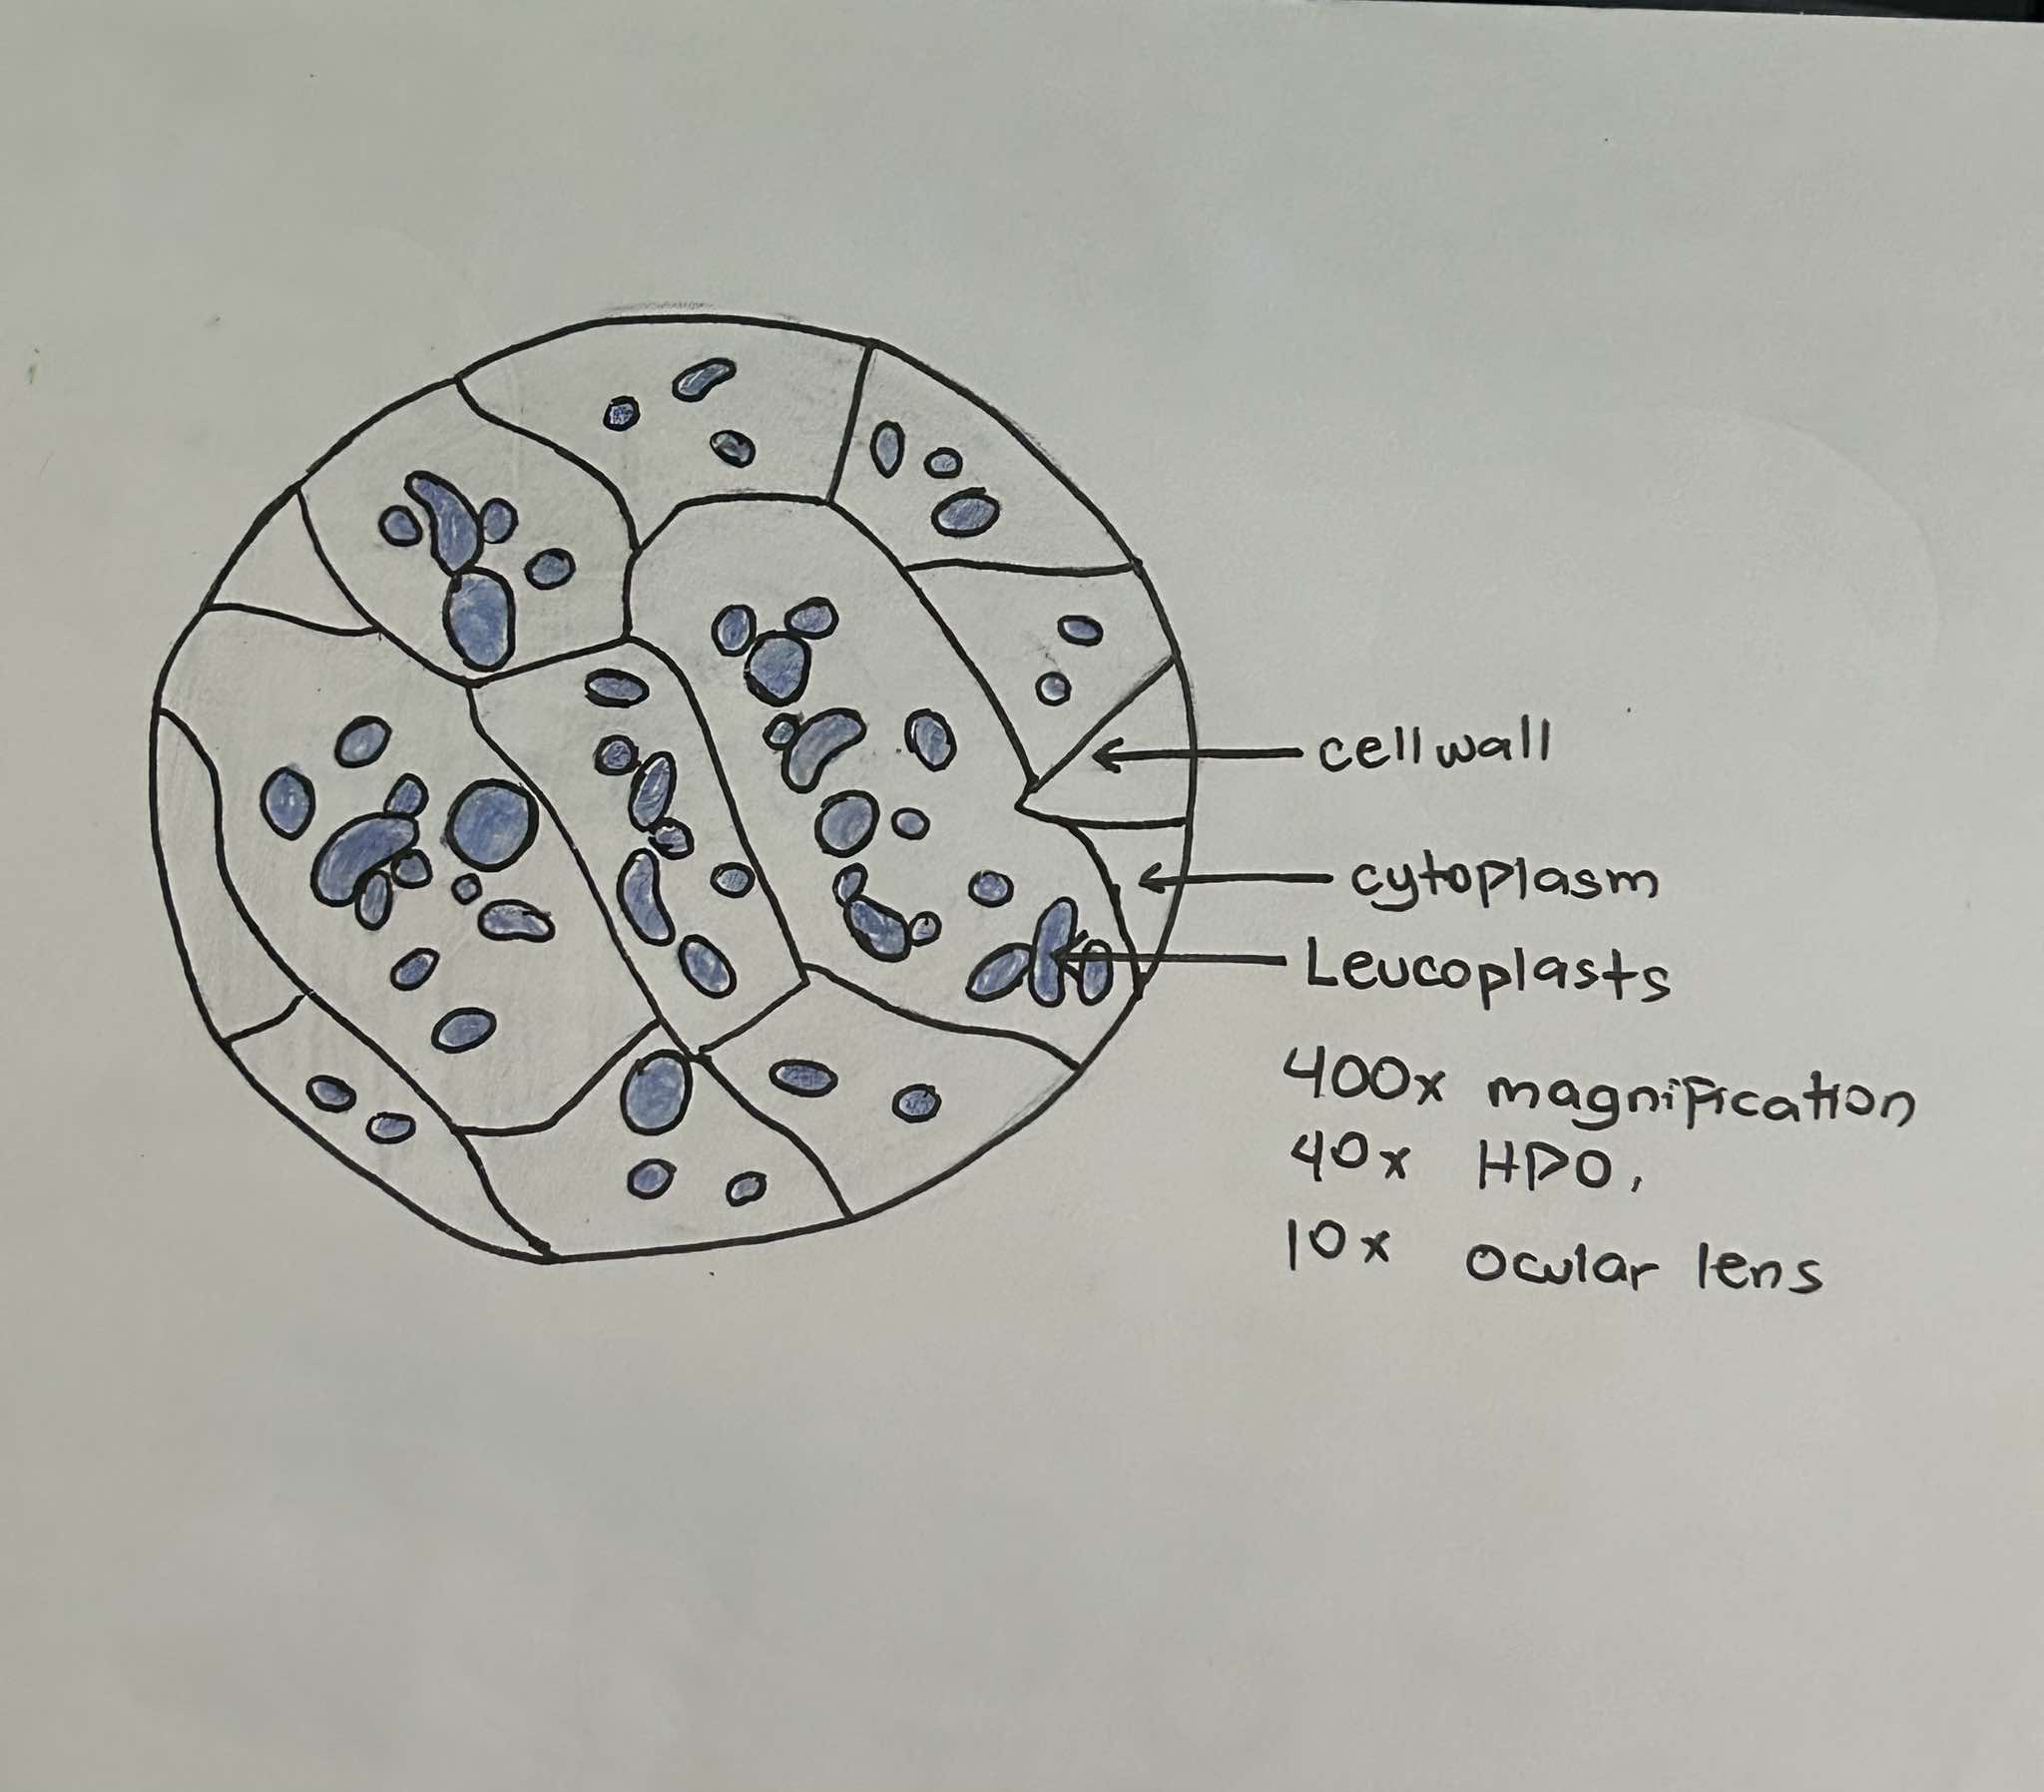 cell wall
cytoplasm
Leucoplasts
400x magnification
40x HPO,
10x ocular lens